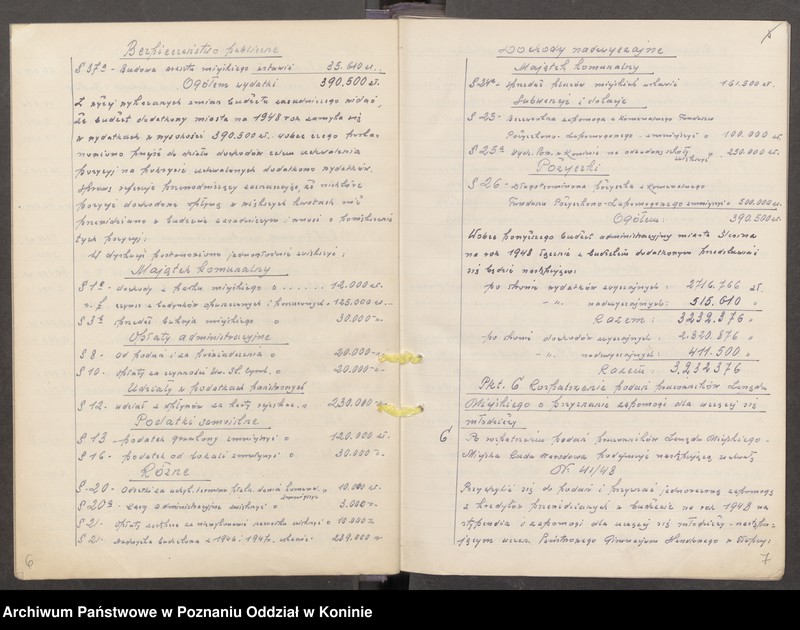 Bezpieczeństwo publiczne
§ 37a - Budowa aresztu miejskiego ustawić 35.610 zł.
Ogółem wydatki 390.500 zł.
Z wyżej wykazanych zmian budżetu zasadniczego widać,
że budżet dodatkowy miasta na 1948 rok zamyka się
w wydatkach w wysokości 390.500 zł. wobec czego
przejść do działu dochodów celem uchwalenia
pozycji na pokrycie uchwalonych dodatkowo wydatków.
Sprawę referuje przewodniczący zaznaczając, że niektóre
pozycje dochodowe wpłyną w większych kwotach niż
przewidziano w budżecie zasadniczym i wnosi o
tych pozycji;
W dyskusji postanowiono jednogłośnie zwiększyć:
Majątek komunalny
§ 1a - dochody z parku miejskiego o ...... 12.000 zł.
czynsz z budynków opuszczonych i 125.000 zł.
§ 3a sprzedaż miejskiego o 30.000 -
Opłaty administracyjne
§ 8 - Od podań i za poświadczenia o 20.000 -
§ 10 - opłaty za czynności Urz. St. Cywil. o 20.000 -
Udziały w podatkach państwowych
§ 12 - udział z wpływów za karty rejestrac. o 230.000 -
Podatki samoistne
§ 13 - podatek gruntowy zmniejszyć o 120.000 zł.
§ 16 - podatek od lokali zmniejszyć o 30.000 -
Różne
§ - 20 - Odsetki za zwłokę o 10.000 zł.
zmniejszyć
§ 20a - kary administracyjne zwiększyć o 3.000 -
§ 21 - opłaty o 10.000 -
§ 21 - Nadwyżka budżetowa z 1946 i 1947 r. 239.000 -
6
Dochody nadzwyczajne
Majątek komunalny
§ 24a - sprzedaż placów miejskich ustawić 161.500 zł.
Subwencje i dotacje
§ 25 - Bezzwrotna zapomoga z Komunalnego Funduszu
Pożyczkowo-Zapomogowego - zmniejszyć o 100.000 zł.
§ 25a Wydz. Pow. w Koninie na odbudowę szkoły
zwiększyć 230.000 zł.
Pożyczki
§ 26 - Długoterminowa pożyczka z Komunalnego
Funduszu Pożyczkowo-Zapomogowego zmniejszyć o 500.000 zł.
Ogółem: 390.500 zł.
Wobec powyższego budżet administracyjny miasta Słupca
na rok 1948 łącznie z budżetem dodatkowym przedstawiać
się będzie następująco:
po stronie wydatków zwyczajnych: 2716.766 zł.
- " - nadzwyczajnych: 515.610 "
Razem: 3232.376 "
po stronie dochodów zwyczajnych: 2.820.876 "
- " - nadzwyczajnych: 411.500 "
Razem: 3.232.376
Pkt. 6 Rozpatrzenie podań pracowników Zarządu
Miejskiego o przyznanie zapomogi dla uczącej się
młodzieży
6 Po rozpatrzeniu podań pracowników Zarządu Miejskiego -
Miejska Rada Narodowa podejmuje następującą uchwałę
Nr. 41/48
Przychylić się do podań i przyznać jednorazową zapomogę
z kredytów przewidzianych w budżecie na rok 1948 na
stypendia i zapomogi dla uczącej się młodzieży - następu-
jącym uczn. Państwowego Gimnazjum Handlowego w Słupcy:
7
Archiwum Państwowe w Poznaniu Oddział w Koninie